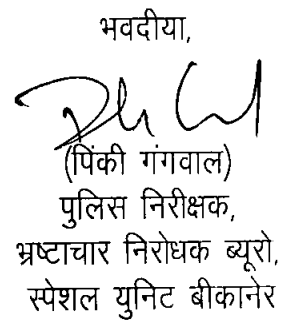 भवदीया,
(पिंकी गंगवाल)
पुलिस निरीक्षक,
भ्रष्टाचार निरोधक ब्यूरो,
स्पेशल युनिट बीकानेर